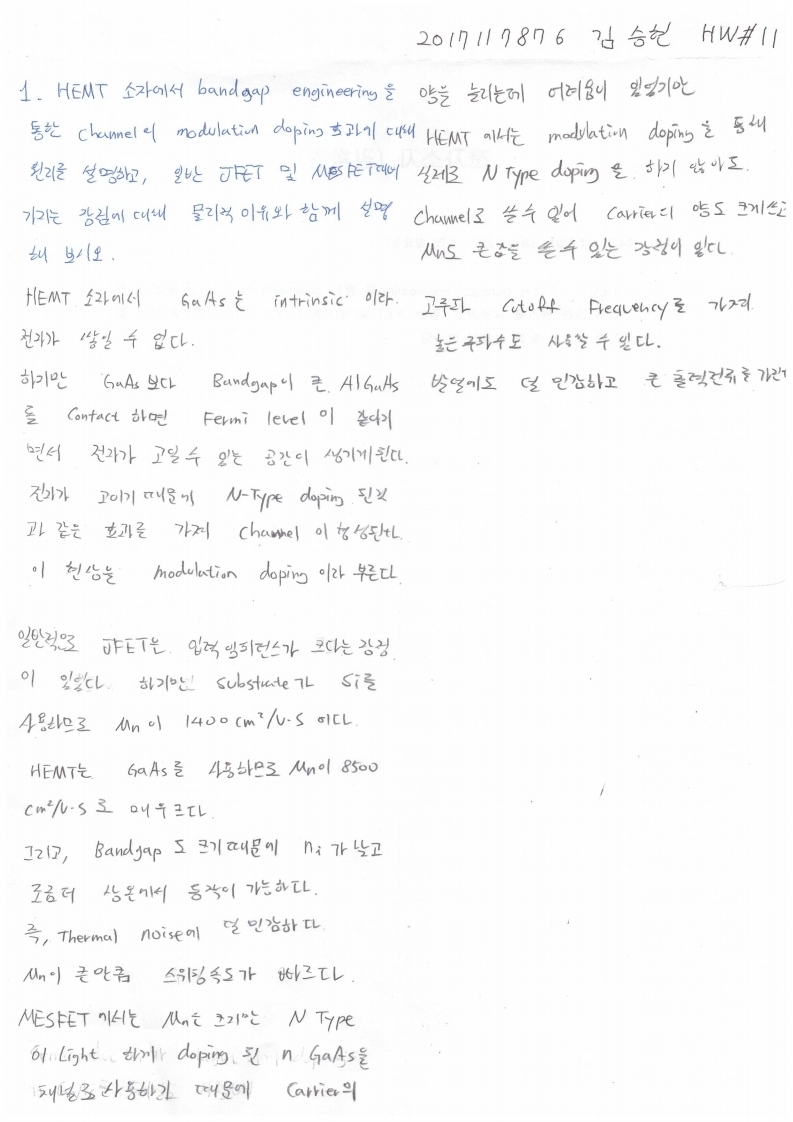 2017117876 김승현 HW#11
1. HEMT 소자에서 bandgap engineering을
통한 channel의 modulation doping 효과에 대해
원리를 설명하고, 일반 JFET 및 MESFET대비
가지는 강점에 대해 물리적 이유와 함께 설명
해 보시오.
HEMT 소자에서 GaAs는 intrinsic 이라.
전자가 쌓일 수 없다.
하지만 GaAs 보다 Bandgap이 큰 AlGaAs
를 Contact 하면 Fermi level 이 같아지
면서 전자가 고일 수 있는 공간이 생기게된다.
전자가 고이기 때문에 N-Type doping 된것
과 같은 효과를 가져 Channel 이 형성된다.
이 현상을 modulation doping 이라 부른다.
일반적으로 JFET은 입력 임피던스가 크다는 강점
이 있었다. 하지만 substrate가 Si를
사용하므로 Mn이 1400 cm²/V·S 이다.
HEMT는 GaAs를 사용하므로 Mn이 8500
cm²/V·S 로 매우 크다.
그리고, Bandgap 도 크기때문에 ni 가 낮고
조금더 상온에서 동작이 가능하다.
즉, Thermal noise에 덜 민감하다.
Mn이 큰만큼 스위칭속도가 빠르다.
MESFET 에서는 Mn는 크지만 N Type
이 Light 하게 doping 된 n GaAs을
채널로 사용하기 때문에 Carrier의
양을 늘리는데 어려움이 있었지만
HEMT 에서는 modulation doping을 통해
실제로 N Type doping 을 하지 않아도.
Channel로 쓸 수 있어 Carrier의 양도 크게쓰고
Mn도 큰 값을 쓸 수 있는 강점이 있다.
고주파 Cutoff Frequency를 가져
높은 주파수도 사용할 수 있다.
발열에도 덜 민감하고 큰 출력전류를